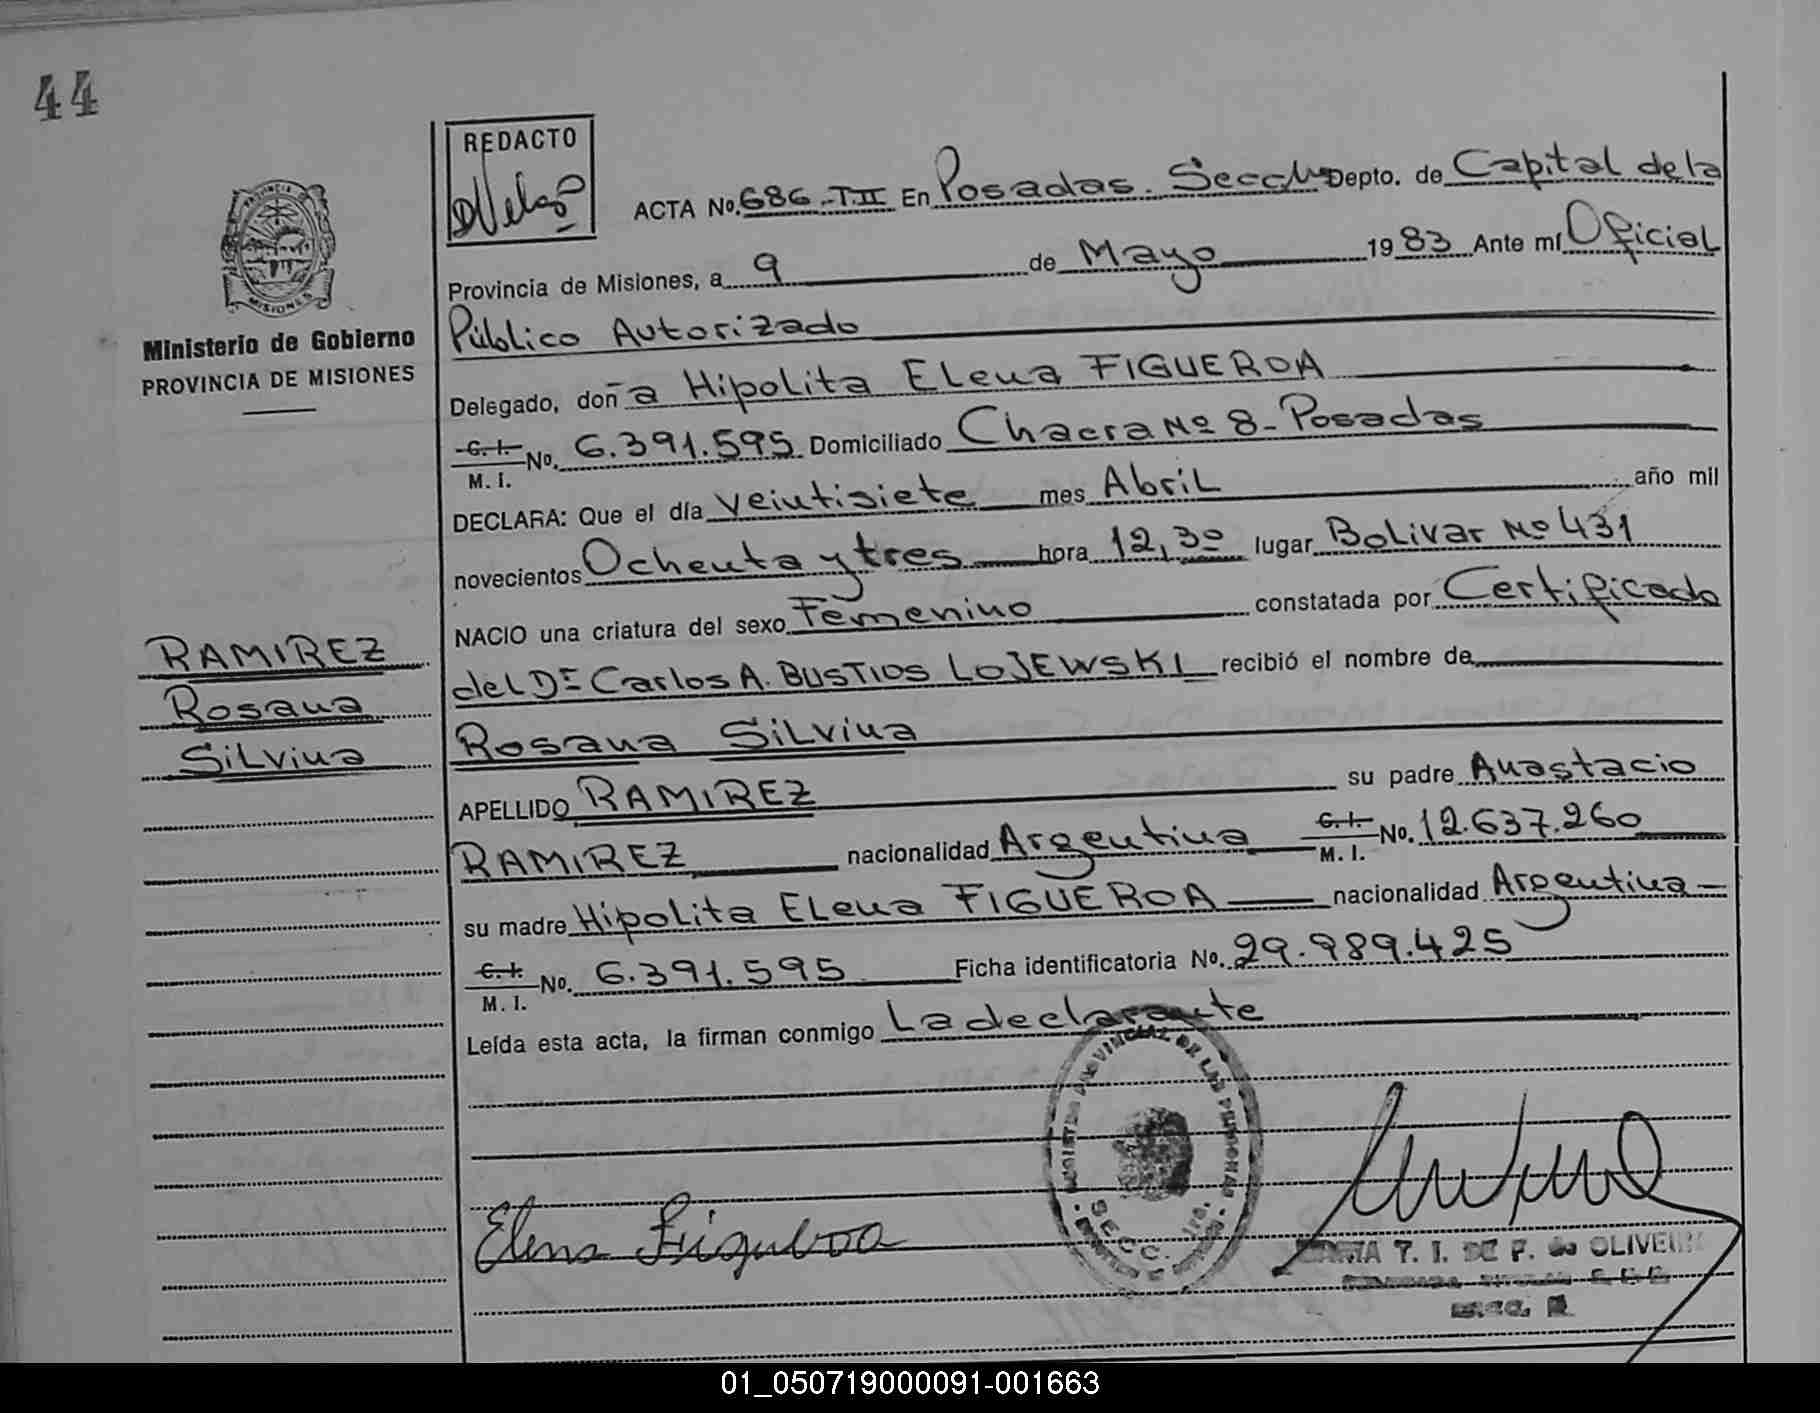 44
REDACTO
ACTA No. 686.-T.II En Posadas. Depto. de Capital de la
Provincia de Misiones, a 9 de Mayo 1983 Ante mí Oficial
Público Autorizado
Delegado, doña Hipolita Elena FIGUEROA
C.I. M.I. No. 6.391.595 Domiciliado Chacra Nº 8- Posadas
DECLARA: Que el día veintisiete mes Abril año mil
novecientos Ochenta y tres hora 12,30 lugar Bolivar Nº 431
NACIO una criatura del sexo Femenino constatada por Certificado
del Dr Carlos A. BUSTIOS LOJEWSKI recibió el nombre de
Rosana Silvina
APELLIDO RAMIREZ su padre Anastacio
RAMIREZ nacionalidad Argentina C.I. M.I. No. 12.637.260
su madre Hipolita Elena FIGUEROA nacionalidad Argentina-
C.I. M.I. No. 6.391.595 Ficha identificatoria No. 29.989.425
Leída esta acta, la firman conmigo La declarante
Ministerio de Gobierno
PROVINCIA DE MISIONES
RAMIREZ
Rosana
Silvina
PROVINCIA DE
MISIONES
Elena Figueroa
PROVINCIAL DE LAS PERSONAS
SECC. 1ra.
T. I. DE F. de OLIVEIRA
01_050719000091-001663